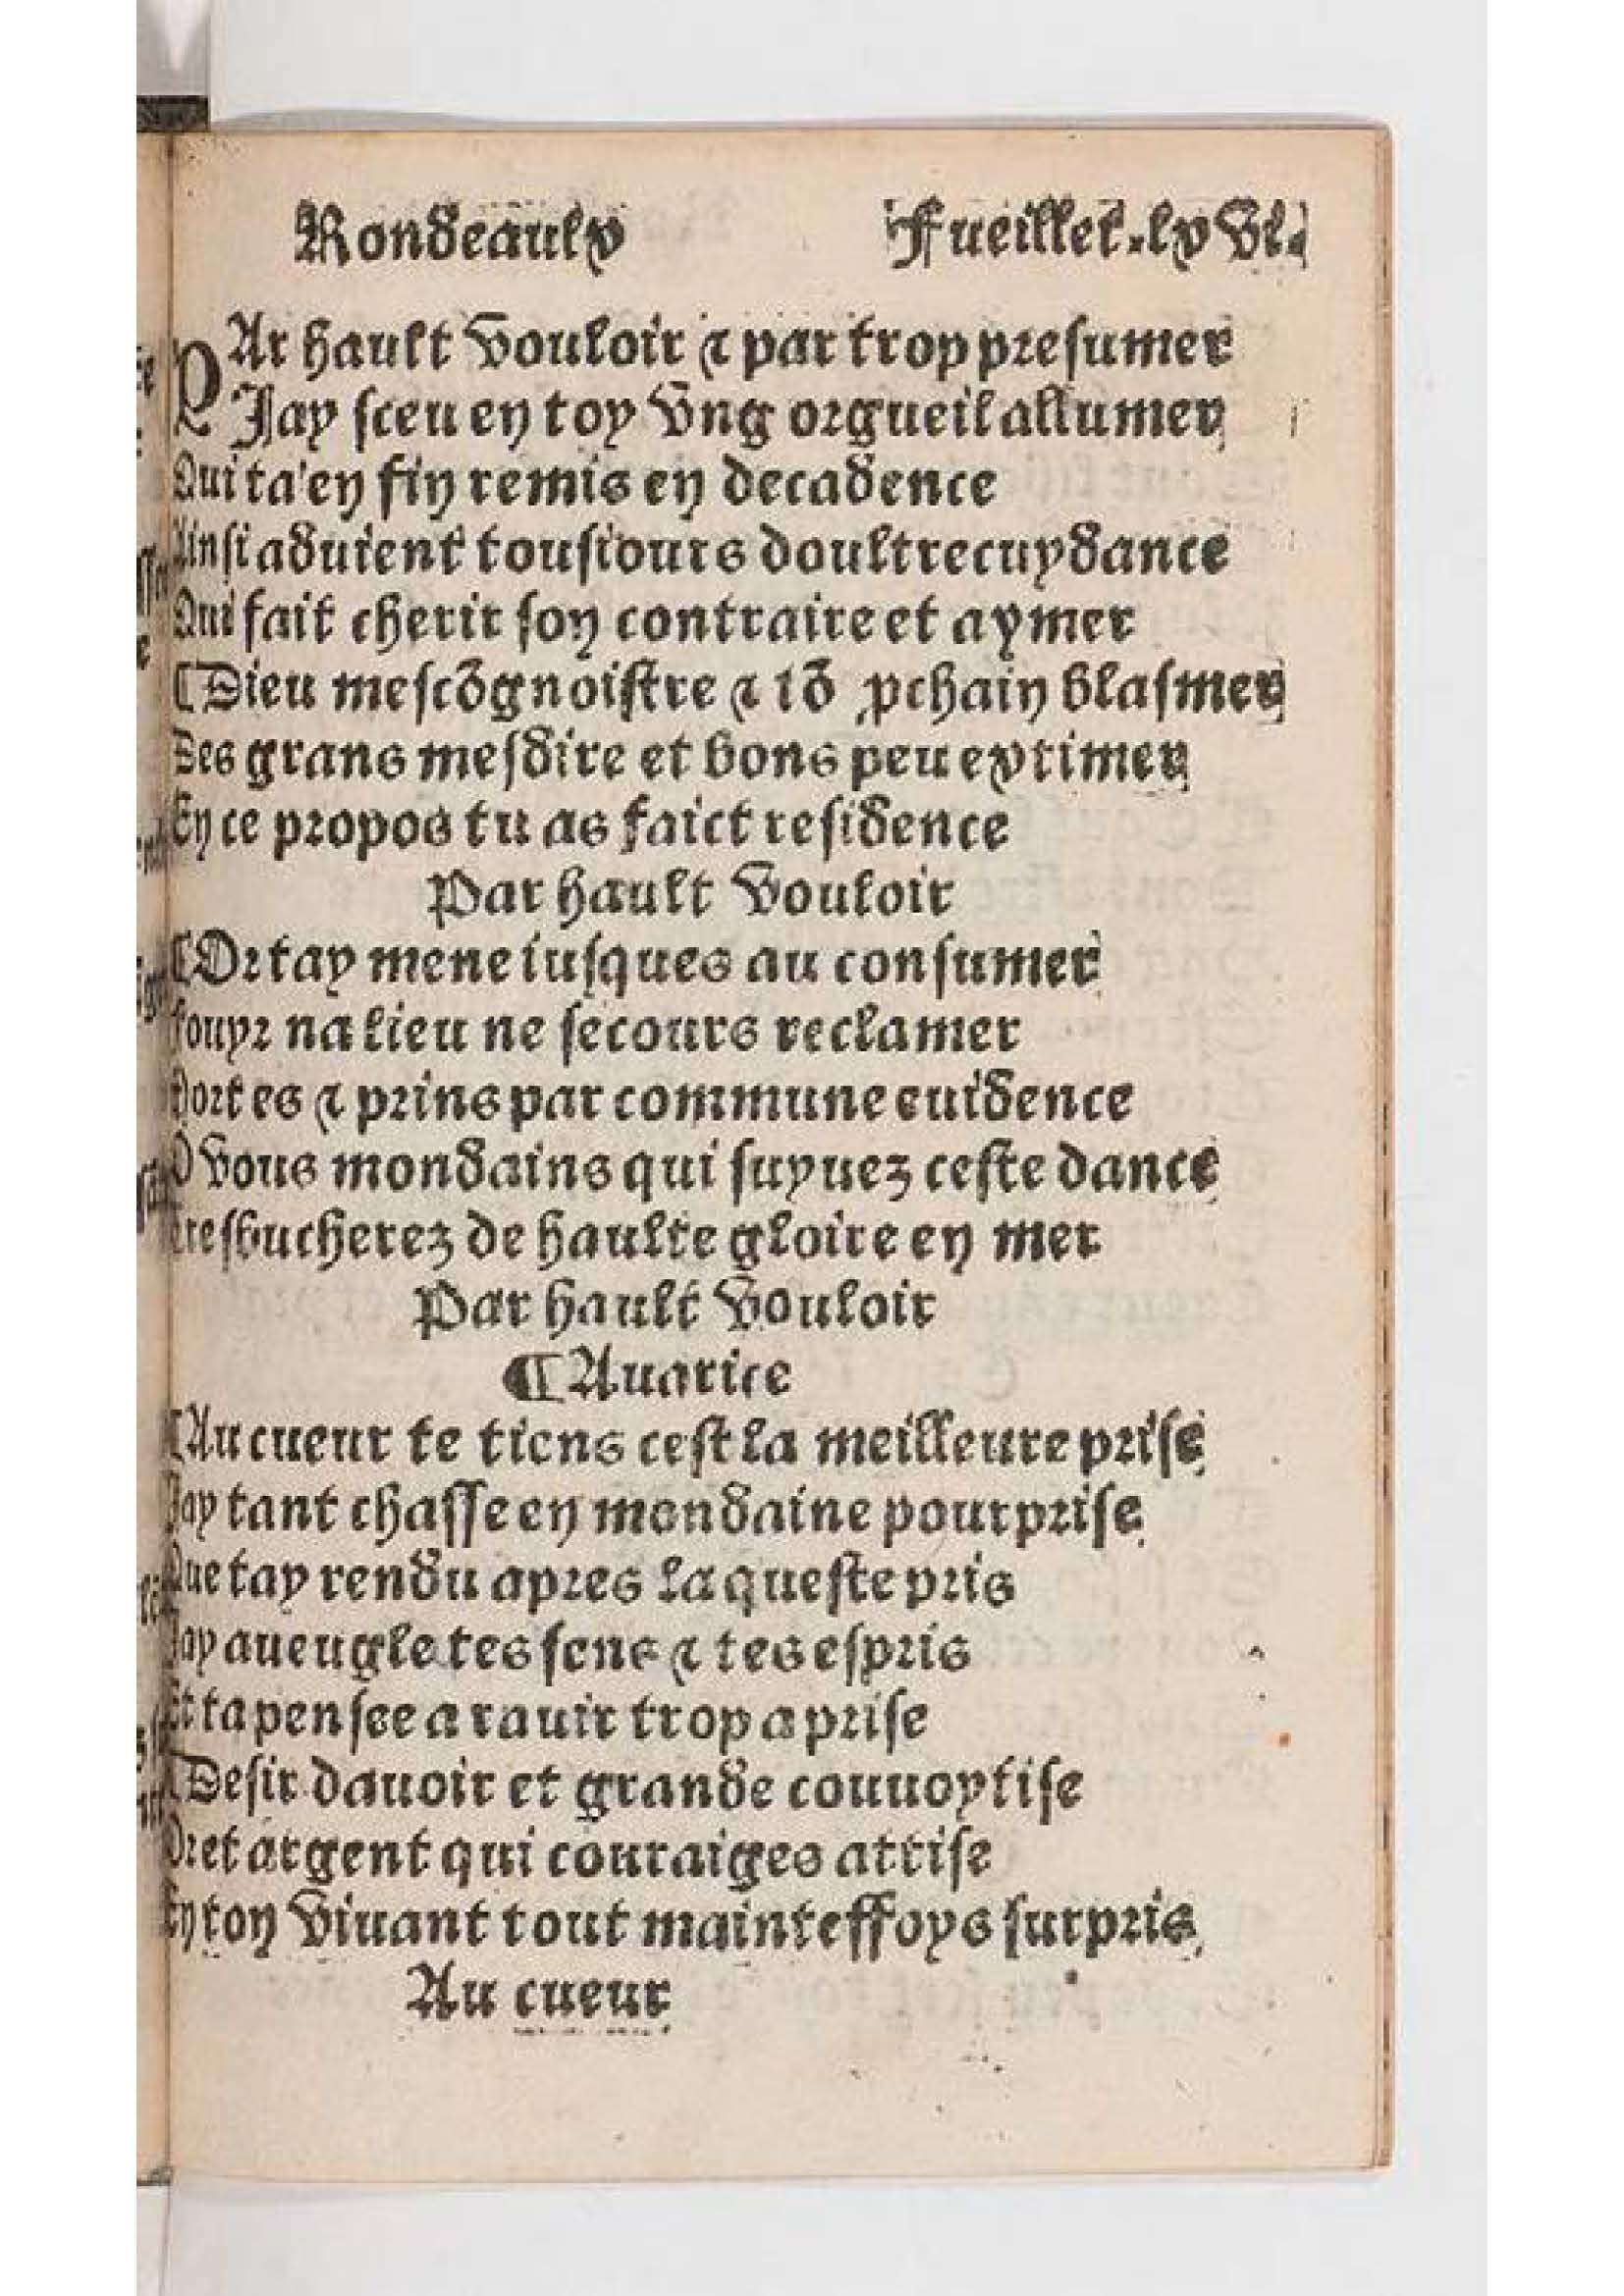 Rondeaulx Fueillet.lxvi.
PAr hault vouloir & par trop presumer
Jay sceu en toy vng orgueil allumer
Qui ta en fin remis en decadence
Ainsi aduient tousiours doultrecuydance
Qui fait cherir son contraire et aymer
¶Dieu mescõgnoistre & tõ ꝓchain blasmer
Des grans mesdire et bons peu extimer
En ce propos tu as faict residence
Par hault vouloir
¶Or tay mene iusques au consumer
Fouyr na lieu ne secours reclamer
Mort es & prins par commune euidence
O vous mondains qui suyuez ceste dance
Tresbucherez de haulte gloire en mer
Par hault vouloir
¶Auarice
¶Au cueur te tiens cest la meilleure prise
Jay tant chasse en mondaine pourprise
Que tay rendu apres la queste pris
Jay aueugle tes sens & tes espris
Et ta pensee a rauir trop aprise
¶Desir dauoir et grande couuoytise
Or et argent qui couraiges attise
En ton viuant tout mainteffoys surpris
Au cueur